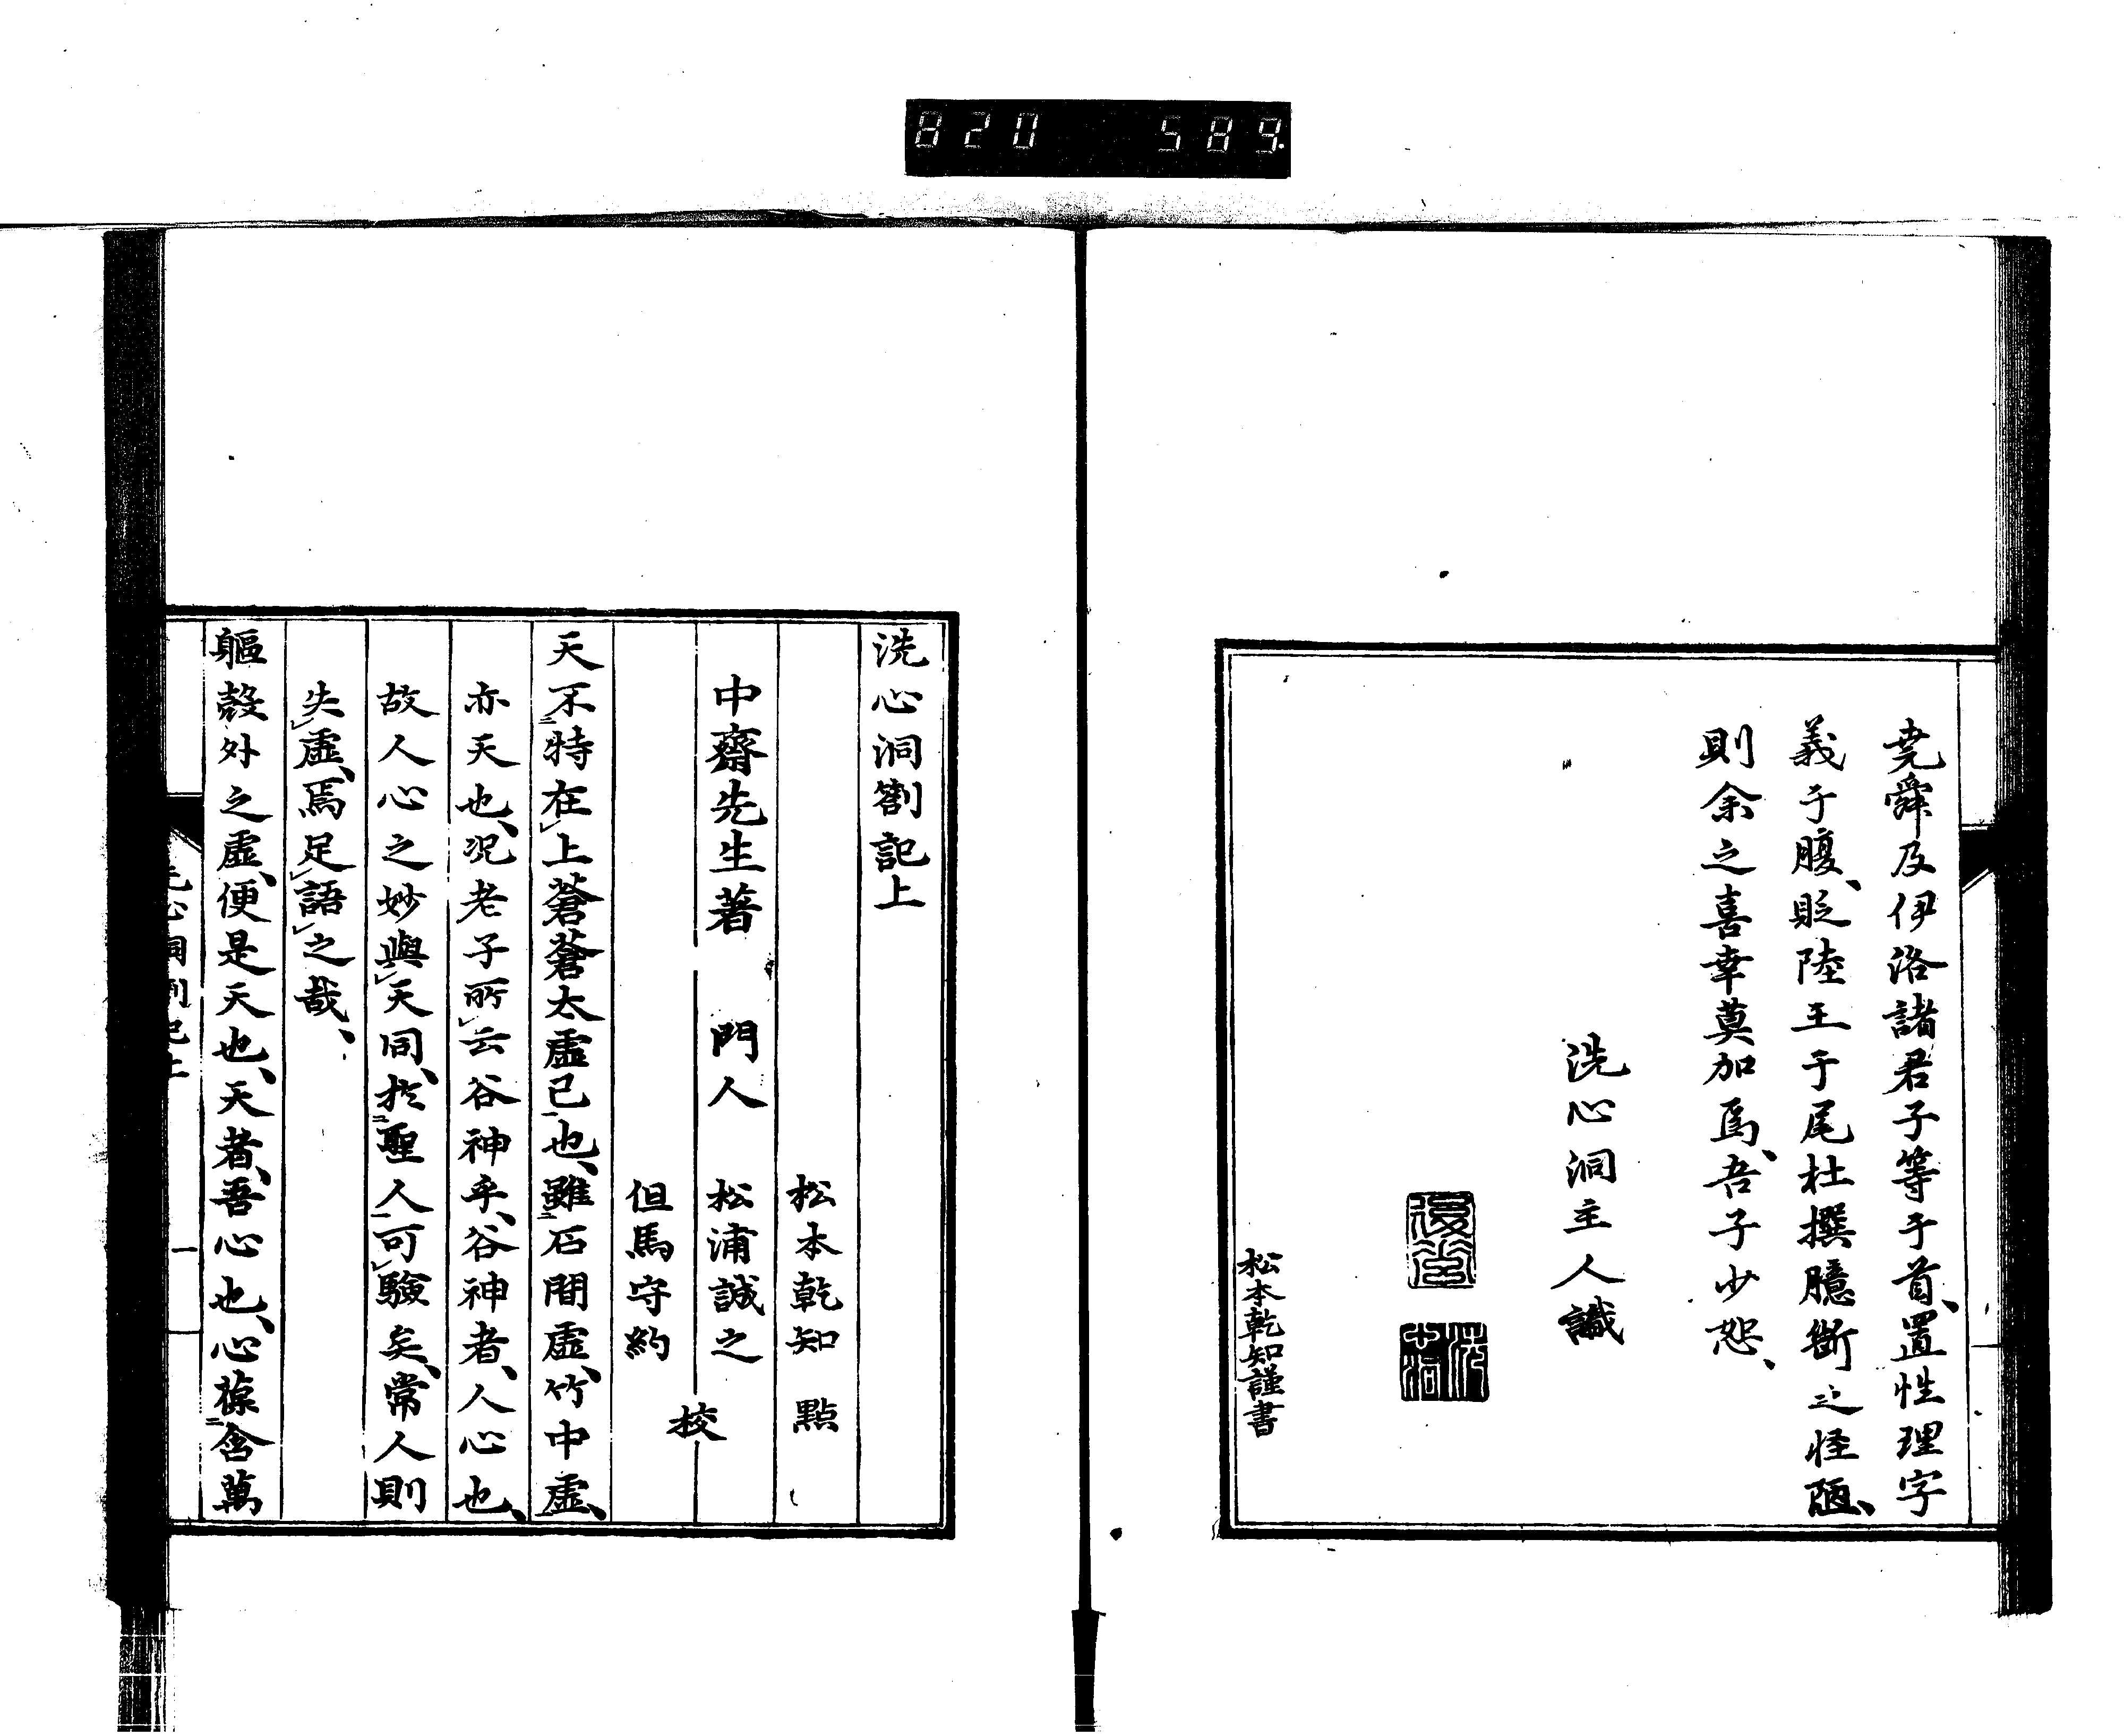 820 589
堯舜及伊洛諸君子等于首、置性理字
義于腹、貶陸王于尾杜撰臆斷之怪陋、
則余之喜幸莫加焉、吾子少恕、
洗心洞主人識
松本乾知謹書
洗心洞劄記上
松本乾知 點
中齋先生著 門人 松浦誠之
但馬守約
校
天不特在上蒼蒼太虛已也、雖石間虛、竹中虛、
亦天也、況老子所云谷神乎、谷神者、人心也、
故人心之妙與天同、於聖人可驗矣、常人則
失虛、焉足語之哉、
軀殼外之虛、便是天也、天者、吾心也、心葆含萬
一